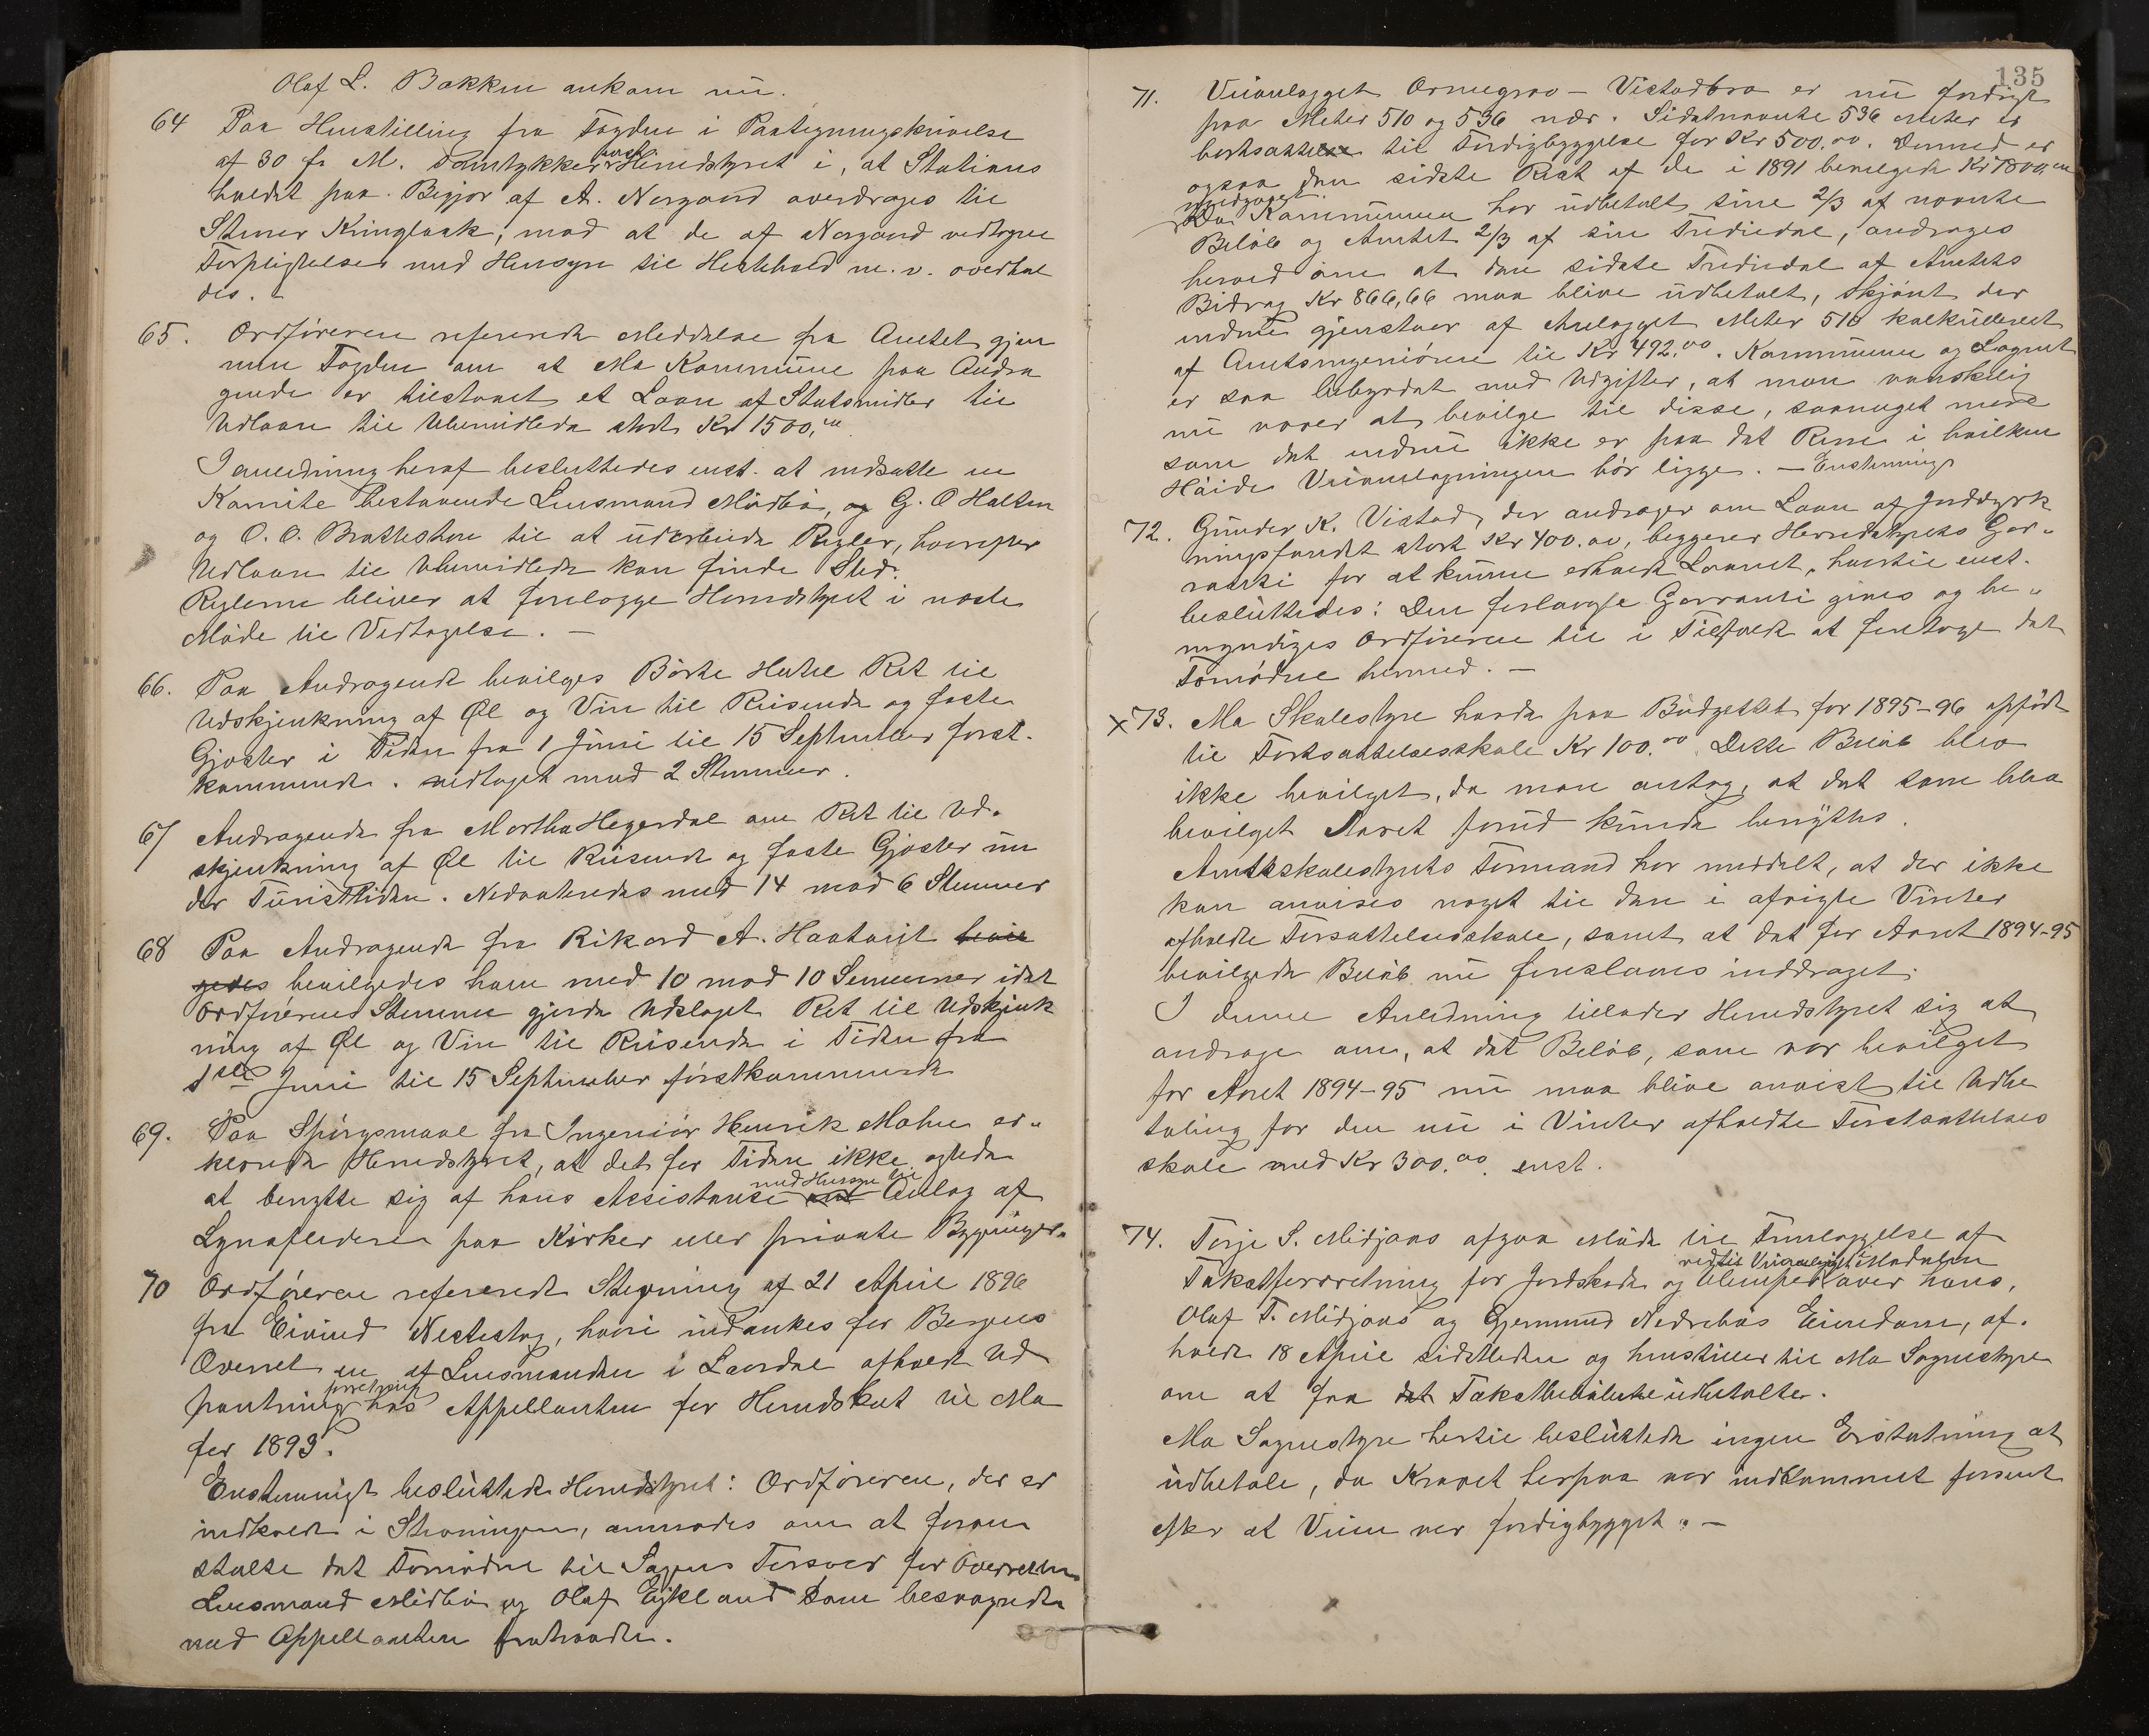 Olaf L. Bakken ankom nu.
64 Paa Henstilling fra Fogden i Paategningsskrivelse
af 30 fr M. Samtykker enst. Herredstyret i, at Stations
holdet paa Begjær af A. Norgaard overdrages til
Stener Kringlaak, mod at de af Norgaard vedtagne
Forpligtelser med Hensyn til Hestehold m. v. overhol
des. –
65. Ordføreren refererede Meddelse fra Amtet gjen
nem Fogden om at Mo Kommune paa Andra
gende er tilstaaet et Laan af Statsmidler til
Udlaan til Ubemidlede stort Kr 1500,00
I anledning heraf besluttedes enst. at nedsætte en
Komite bestaaende Lensmand Midbø, og G. O Holten
og O. O. Bratteshon til at udarbeide Regler, hvorefter
Udlaan til Ubemidlede kan finde Sted.
Reglerne bliver at forelægge Herredstyret i næste
Møde til Vedtagelse. –
66. Paa Andragende bevilges Børte Hotel Ret til
Udskjenkning af Øl og Vin til Reisende og faste
Gjæster i Tiden fra 1 Juni til 15 September først-
kommende. vedtaget mod 2 Stemmer.
67 Andragende fra Martha Hegerdal om Ret til Ud-
skjenkning af Øl til Reisende og faste Gjæster un
der Turisttiden. Nedvoteredes med 14 mod 6 Stemmer
68 Paa Andragende fra Rikard A. Haatveit bevil
gedes bevilgedes ham med 10 mod 10 Semmer idet
Ordførerens Stemme gjorde Udslaget Ret til Udskjenk
ning af Øl og Vin til Reisende i Tiden fra
1ste Juni til 15 September førstkommende
69. Paa Spørgsmaal fra Ingeniør Henrik Mohn er-
klærede Herredstyret, at det for Tiden ikke agtede
at benytte sig af hans Assistanse ved med Hensyn til Anlæg af
Lynafledere paa Kirker eller private Bygninger.
70 Ordføreren refererede Stevning af 21 April 1896
fra Eivind Nestestog, hvori indankes for Bergens
Overret en af Lensmanden i Laurdal afholdt Ud
pantningsforretning hos Appellanten for Herredskat til Mo
for 1893.
Enstemmigt besluttede Herredstyret: Ordføreren, der er
indkaldt i Stævningen, anmodes om at foran
stalte det Fornødne til Sagens Forsvar for Overretten
Lensmand Midbø og Olaf Eikland som besvogrede
med Appellanten fratraadte.
135
71. Veianlægget Ormegrav – Vistadbro er nu færdigt
paa Meter 510 og 536 nær. Sidstnævnte 536 Meter er
bortsat til Færdigbyggelse for Kr 500.00. Dermed er
ogsaa den sidste Rest af de i 1891 bevilgede Kr 7800,00
medgaaet.
Da Kommunen har udbetalt sine 2/3 af nævnte
Beløb og Amtet 2/3 af sin Trediedel, andrages
herved om at den sidste Trediedel af Amtets
Bidrag Kr 866,66 maa blive udbetalt, skjønt der
endnu gjenstaar af Anlægget Meter 510 kalkulleret
af Amtsingeniøren til Kr 492,00. Kommunen og Sognet
er saa bebyrdet med Udgifter, at man vanskelig
nu vover at bevilge til disse, saameget mere
som det endnu ikke er paa det Rene i hvilken
Høide Veianlægningen bør ligge. – Enstemmigt
72. Gunder K. Vistad, der andrager om Laan af Jorddyrk
ningsfondet stort Kr 400.00, begjærer Herredstyrets Gar-
ranti for at kunne erholde Laanet, hvortil enst.
besluttedes: Den forlangte Garranti gives og be-
myndiges Ordføreren til i Tilfælde at foretage det
Fornødne hermed. –
x 73. Mo Skolestyre havde paa Budgettet for 1895–96 opført
til Fortsættelsesskole Kr 100.00. Dette Beløb blev
ikke bevilget, da man antog, at det som blev
bevilget Aaret forud kunde benyttes.
Amtsskolestyrets Formand har meddelt, at der ikke
kan anvises noget til den i afvigte Vinter
afholdte Forsættelsesskole, samt at det for Aaret 1894–95
bevilgede Beløb nu foreslaaes inddraget.
I denne Anledning tillader Herredstyret sig at
andrage om, at det Beløb, som var bevilget
for Aaret 1894–95 nu maa blive anvist til Udbe
taling for den nu i Vinter afholdte Forsættelses
skole med Kr 300.00. enst.
74. Terje S. Midjaas afgav Møde til Fremlæggelse af
Takstforretning for Jordskade og Ulemper ved Veianlægget i Modalen over hans,
Olaf T. Midjaas og Gjermund Nedrebøs Eiendom, af-
holdt 18 April sidstleden og henstiller til Mo Sognestyre
om at faa det Takstbeløbene udbetalte.
Mo Sognestyre hertil besluttede ingen Erstatning at
udbetale, da Kravet herpaa var indkommet forsent
efter at Veien var færdigbygget. –